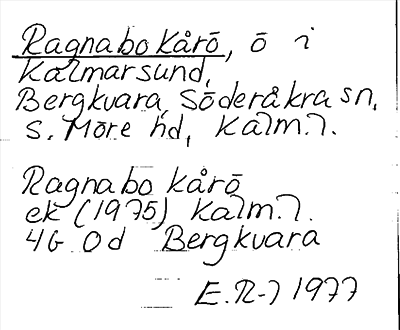 Ragnabo kårö, ö i
Kalmarsund,
Bergkvara, Söderåkra sn,
S. Möre hd, Kalm. l.
Ragnabo kårö
ek (1975) Kalm. l.
4G 0d Bergkvara
E.R-l 1977